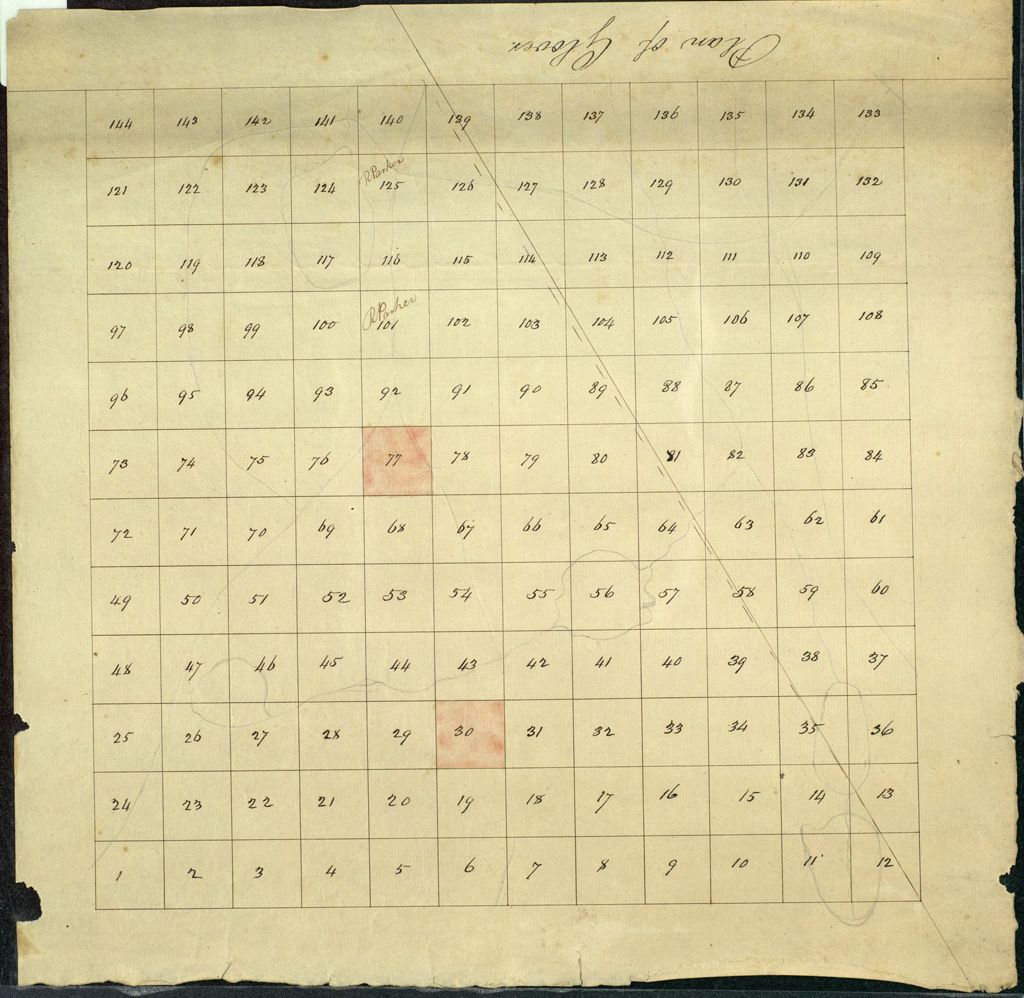 Plan of Glover
144 143 142 141 140 139 138 137 136 135 134 133
R Parker
121 122 123 124 125 126 127 128 129 130 131 132
120 119 118 117 116 115 114 113 112 111 110 109
R Parker
97 98 99 100 101 102 103 104 105 106 107 108
96 95 94 93 92 91 90 89 88 87 86 85
73 74 75 76 77 78 79 80 81 82 83 84
72 71 70 69 68 67 66 65 64 63 62 61
49 50 51 52 53 54 55 56 57 58 59 60
48 47 46 45 44 43 42 41 40 39 38 37
25 26 27 28 29 30 31 32 33 34 35 36
24 23 22 21 20 19 18 17 16 15 14 13
1 2 3 4 5 6 7 8 9 10 11 12